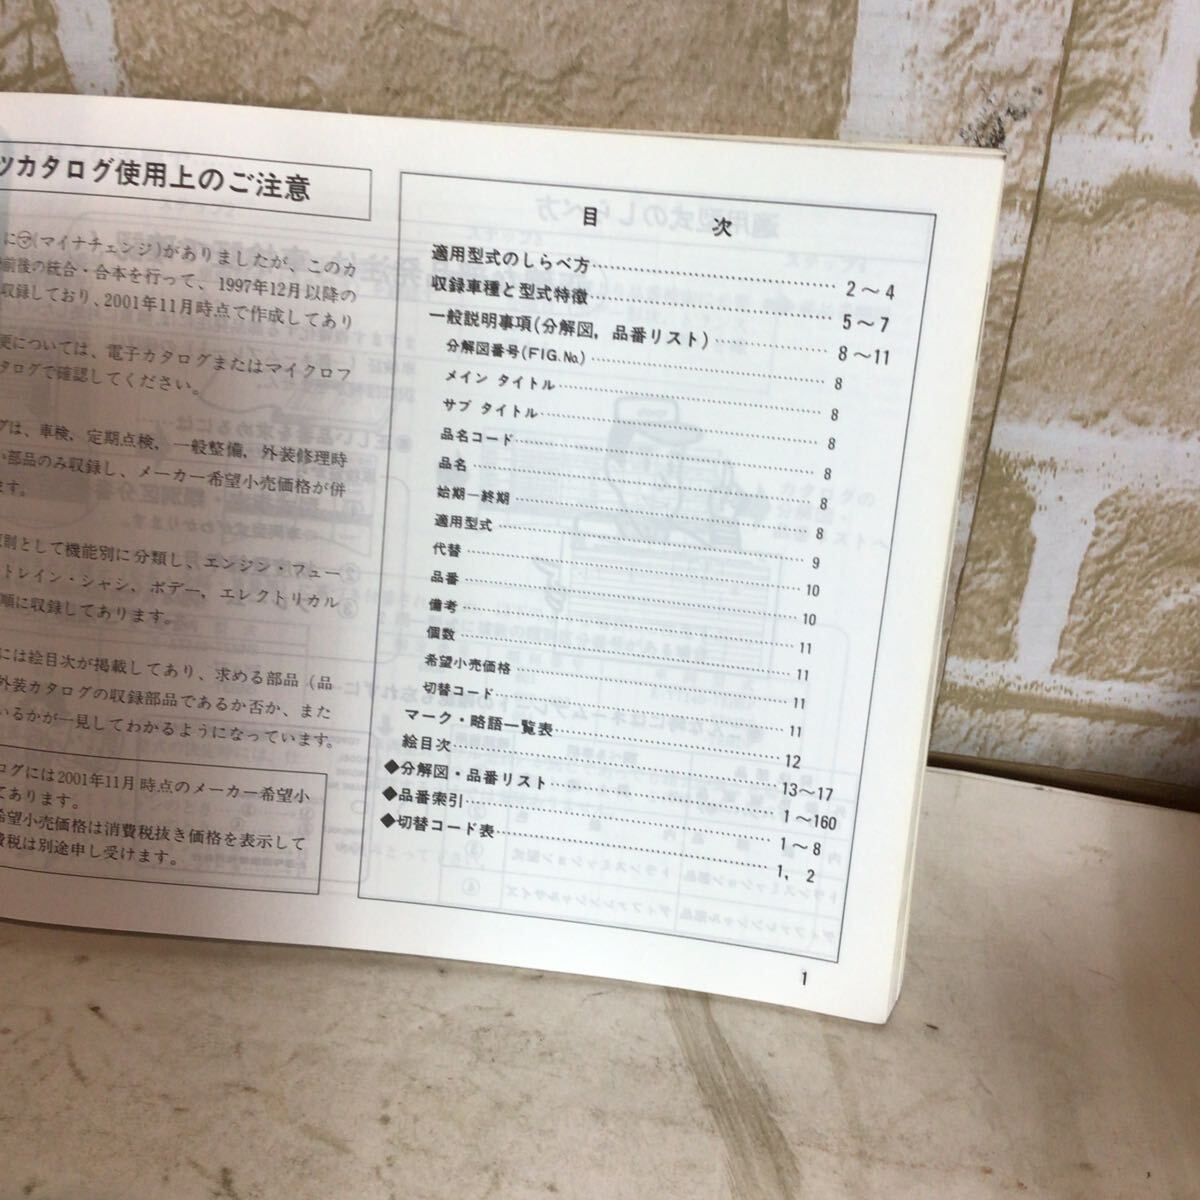 ツカタログ使用上のご注意
に㋮(マイナチェンジ)がありましたが、このカ
前後の統合・合本を行って、1997年12月以降の
収録しており、2001年11月時点で作成してあり
更については、電子カタログまたはマイクロフ
タログで確認してください。
グは、車検, 定期点検, 一般整備, 外装修理時
い部品のみ収録し、メーカー希望小売価格が併
ます。
原則として機能別に分類し、エンジン・フュー
トレイン・シャシ, ボデー, エレクトリカル
順に収録してあります。
には絵目次が掲載してあり、求める部品 (品
外装カタログの収録部品であるか否か、また
いるかが一見してわかるようになっています。
ログには2001年11月時点のメーカー希望小
てあります。
希望小売価格は消費税抜き価格を表示して
費税は別途申し受けます。
目 次
適用型式のしらべ方 2～4
収録車種と型式特徴 5～7
一般説明事項(分解図, 品番リスト) 8～11
分解図番号(FIG.No.) 8
メイン タイトル 8
サブ タイトル 8
品名コード 8
品名 8
始期ー終期 8
適用型式 9
代替 10
品番 10
備考 11
個数 11
希望小売価格 11
切替コード 11
マーク・略語一覧表 12
絵目次 13～17
◆分解図・品番リスト 1～160
◆品番索引 1～8
◆切替コード表 1, 2
1